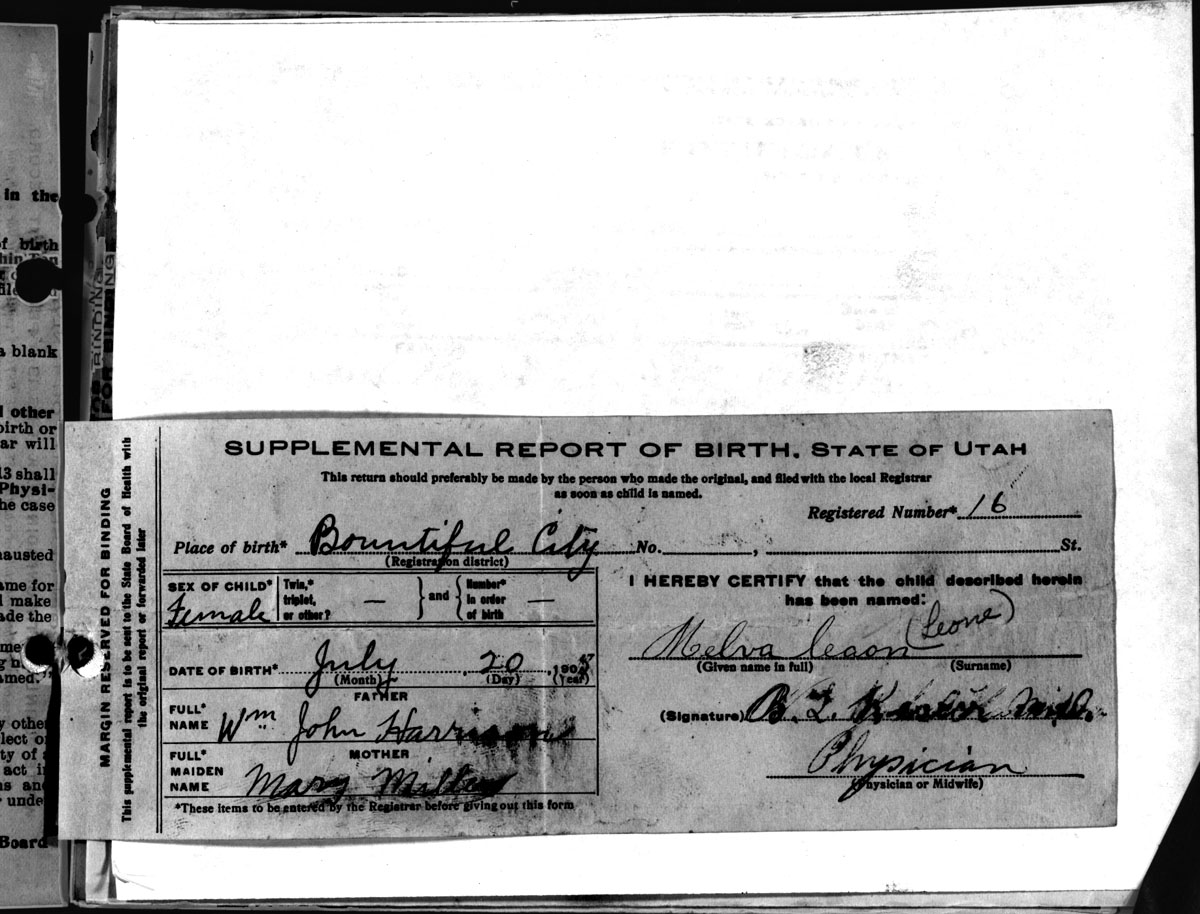 in the
of birth
a blank
other
birth or
ar will
13 shall
Physi-
he case
hausted
ame for
l make
ade the
y other
lect or
ty of a
act in
ns and
unde
Board
FOR BINDING
MARGIN RESERVED FOR BINDING
This supplemental report is to be sent to the State Board of Health with
the original report or forwarded later
SUPPLEMENTAL REPORT OF BIRTH. STATE OF UTAH
This return should preferably be made by the person who made the original, and filed with the local Registrar
as soon as child is named.
Registered Number* 16
Place of birth* Bountiful City No. , St.
(Registration district)
SEX OF CHILD* Female
Twin,* triplet, or other? — } and { Number* in order of birth —
DATE OF BIRTH* July 20, 190
(Month) (Day) (Year)
FATHER
FULL* NAME Wm John Harrison
MOTHER
FULL* MAIDEN NAME Mary Miller
*These items to be entered by the Registrar before giving out this form
I HEREBY CERTIFY that the child described herein
has been named:
Melva Leaon (Leone)
(Given name in full) (Surname)
(Signature) B. L.
Physician
(Physician or Midwife)